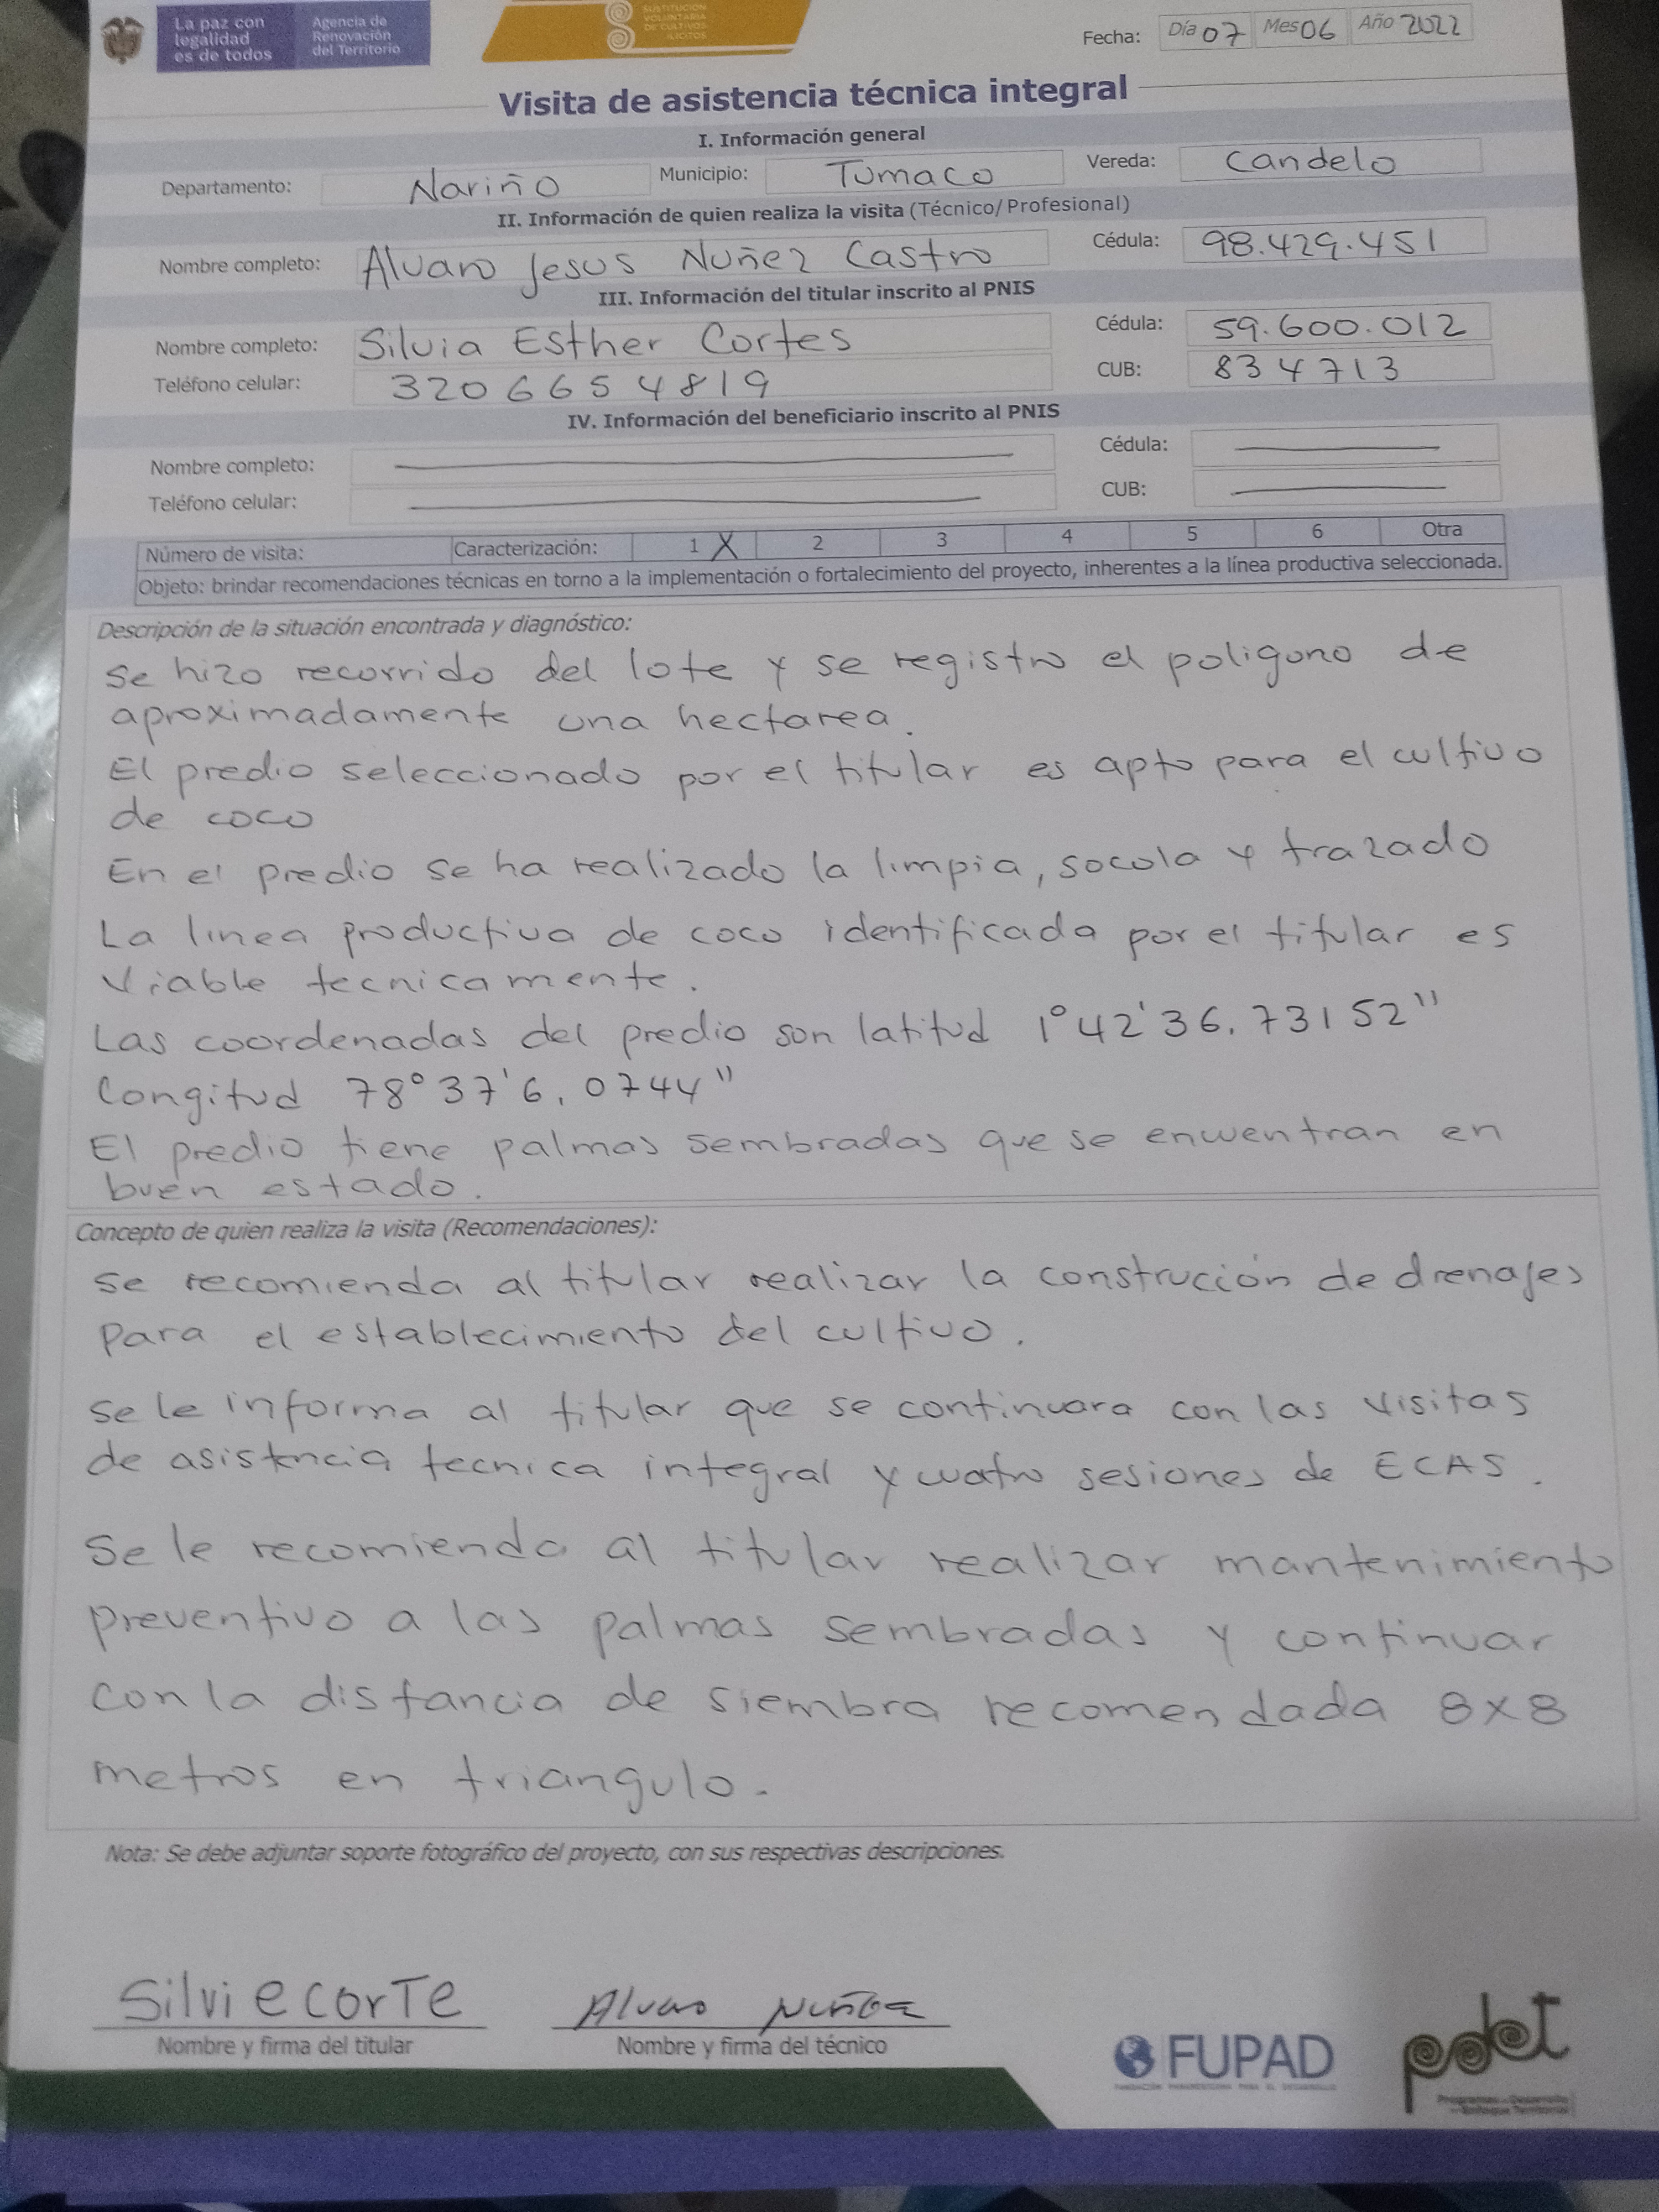 La paz con
legalidad
es de todos
Agencia de
Renovación
del Territorio
SUSTITUCIÓN
VOLUNTARIA
DE CULTIVOS
ILÍCITOS
Fecha: Día 07 Mes 06 Año 2022
Visita de asistencia técnica integral
I. Información general
Departamento: Nariño Municipio: Tumaco Vereda: Candelo
II. Información de quien realiza la visita (Técnico/Profesional)
Nombre completo: Alvaro Jesus Nuñez Castro Cédula: 98.429.451
III. Información del titular inscrito al PNIS
Nombre completo: Silvia Esther Cortes Cédula: 59.600.012
Teléfono celular: 3206654819 CUB: 834713
IV. Información del beneficiario inscrito al PNIS
Nombre completo: Cédula:
Teléfono celular: CUB:
Número de visita: Caracterización: 1 X 2 3 4 5 6 Otra
Objeto: brindar recomendaciones técnicas en torno a la implementación o fortalecimiento del proyecto, inherentes a la línea productiva seleccionada.
Descripción de la situación encontrada y diagnóstico:
Se hizo recorrido del lote y se registro el poligono de
aproximadamente una hectarea.
El predio seleccionado por el titular es apto para el cultivo
de coco
En el predio se ha realizado la limpia, socola y trazado
La linea productiva de coco identificada por el titular es
Viable tecnicamente.
Las coordenadas del predio son latitud 1°42'36.73152"
Longitud 78°37'6,0744"
El predio tiene palmas sembradas que se encuentran en
buen estado.
Concepto de quien realiza la visita (Recomendaciones):
Se recomienda al titular realizar la construción de drenajes
para el establecimiento del cultivo.
Se le informa al titular que se continuara con las visitas
de asistencia tecnica integral y cuatro sesiones de ECAS.
Se le recomienda al titular realizar mantenimiento
preventivo a las palmas sembradas y continuar
con la distancia de siembra recomendada 8x8
metros en triangulo.
Nota: Se debe adjuntar soporte fotográfico del proyecto, con sus respectivas descripciones.
Silvi e corTe Alvaro Nuñez
Nombre y firma del titular Nombre y firma del técnico
FUPAD
pdet